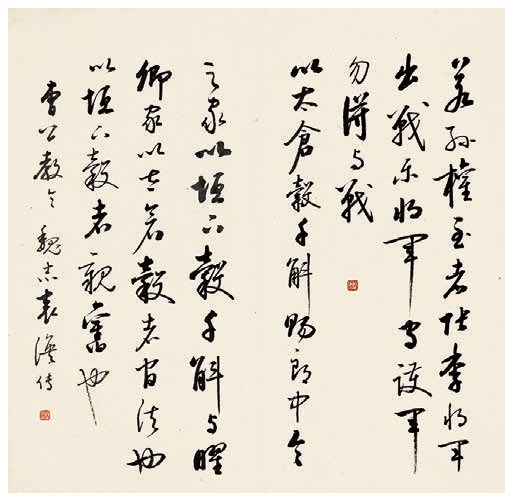 若孫權至者張李將軍
出戰樂將軍守護軍
勿得与戰
以太倉穀千斛賜郎中令
之家以垣下穀千斛与曜
卿家以太倉穀者官法也
以垣下穀者親舊也
曹公教令 魏志袁渙傳